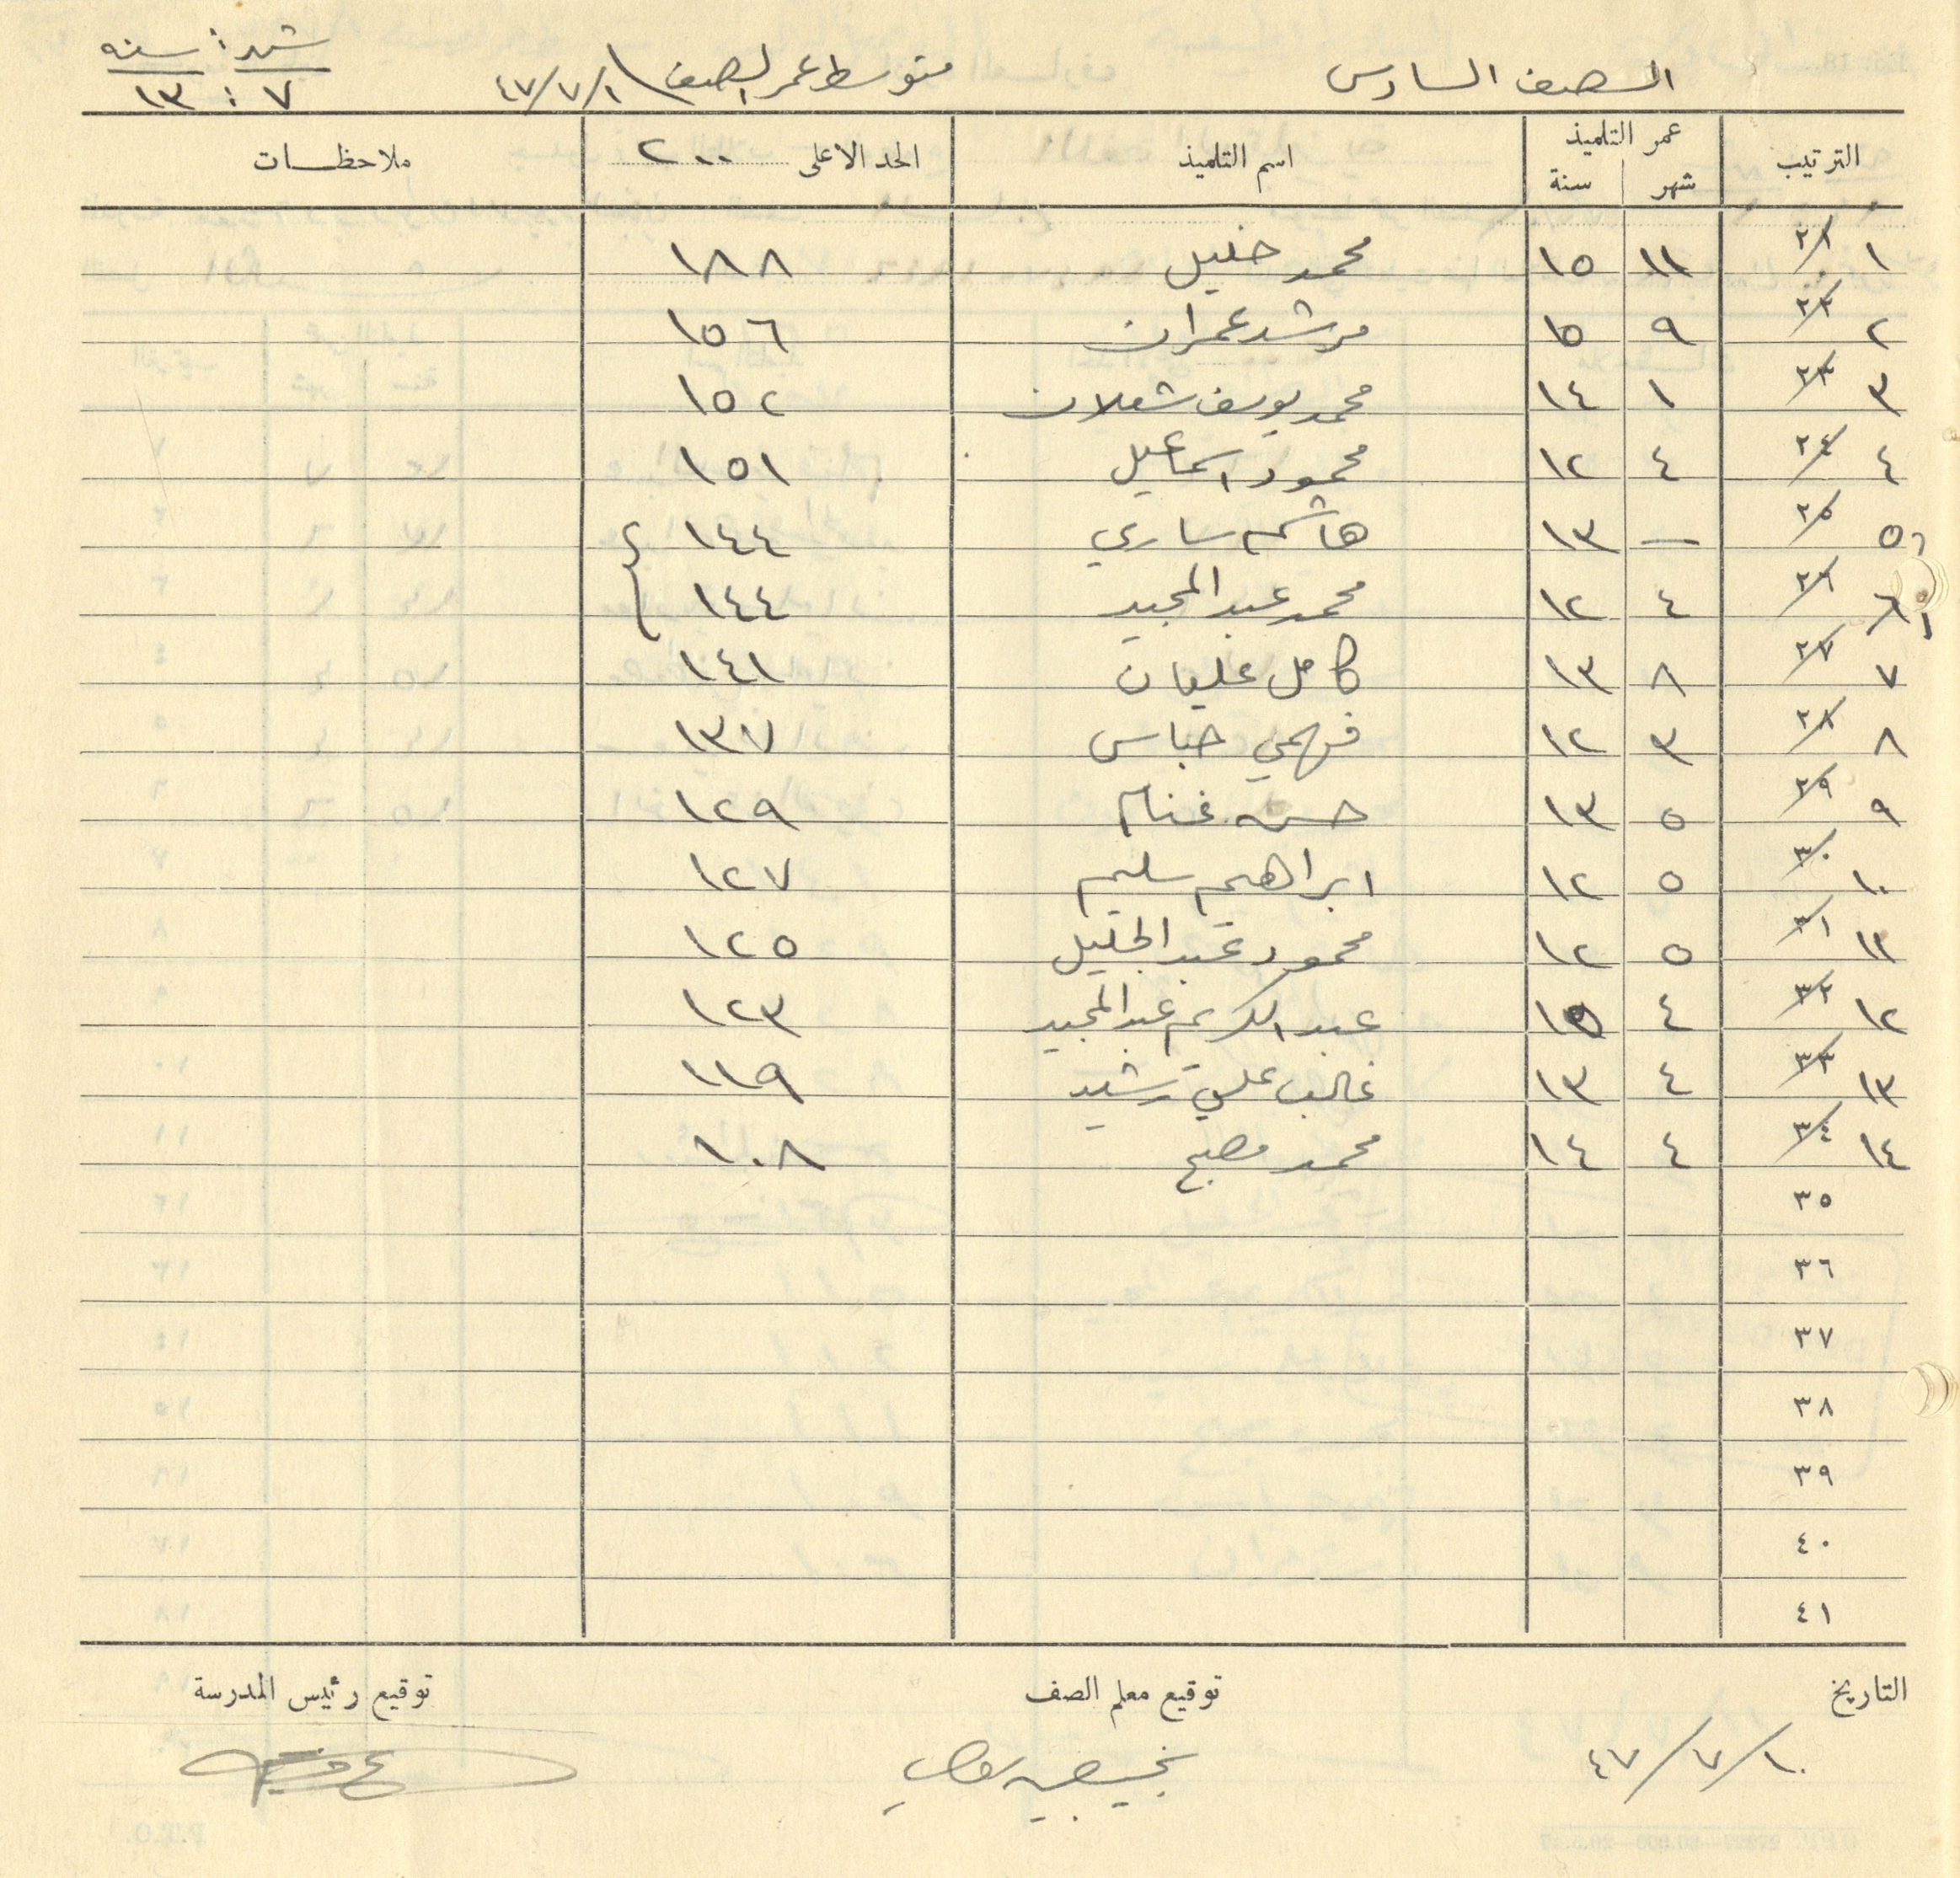 الصف السادس متوسط عمر الصف ١/٧/٤٧ شهر : سنه
٧ : ١٣
الترتيب عمر التلميذ اسم التلميذ الحد الاعلى ٢٠٠ ملاحظات
شهر سنة
١ ٢١ ١١ ١٥ محمد خليل ١٨٨
٢ ٢٢ ٩ ١٥ مرشد عمران ١٥٦
٣ ٢٣ ١ ١٤ محمد يوسف شعلان ١٥٢
٤ ٢٤ ٤ ١٢ محمود اسماعيل ١٥١
٥ ٢٥ — ١٣ هاشم ساري ١٤٤
٦ ٢٦ ٤ ١٢ محمد عبد المجيد ١٤٤
٧ ٢٧ ٨ ١٣ كامل عليان ١٤١
٨ ٢٨ ٣ ١٢ فهمي عباس ١٣٧
٩ ٢٩ ٥ ١٣ حسن غنام ١٢٩
١٠ ٣٠ ٥ ١٢ ابراهيم سليم ١٢٧
١١ ٣١ ٥ ١٢ محمود عبد الجليل ١٢٥
١٢ ٣٢ ٤ ١٥ عبد الكريم عبد المجيد ١٢٣
١٣ ٣٣ ٤ ١٣ غالب علي رشيد ١١٩
١٤ ٣٤ ٤ ١٤ محمد مصبح ١٠٨
٣٥
٣٦
٣٧
٣٨
٣٩
٤٠
٤١
التاريخ توقيع معلم الصف توقيع رئيس المدرسة
١٠/٧/٤٧